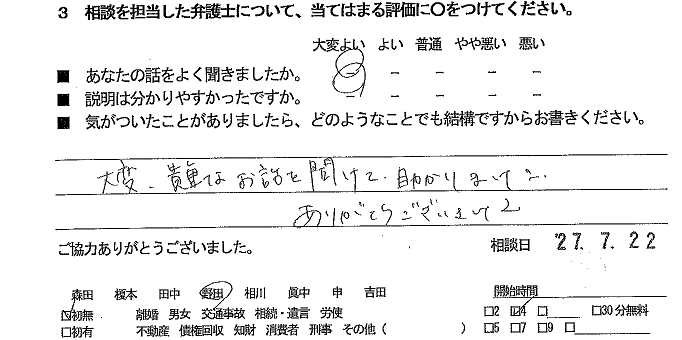 3 相談を担当した弁護士について、当てはまる評価に〇をつけてください。
大変よい よい 普通 やや悪い 悪い
■ あなたの話をよく聞きましたか。 － － － －
■ 説明は分かりやすかったですか。 － － － － －
■ 気がついたことがありましたら、どのようなことでも結構ですからお書きください。
大変、貴重なお話を聞けて、助かりました。
ありがとうございました
ご協力ありがとうございました。 相談日 '27. 7. 22
森田 榎本 田中 野田 相川 眞中 申 吉田 開始時間
☑初無 離婚 男女 交通事故 相続・遺言 労使 □2 ☑4 □ □30分無料
□初有 不動産 債権回収 知財 消費者 刑事 その他( ) □5 □7 □9 □